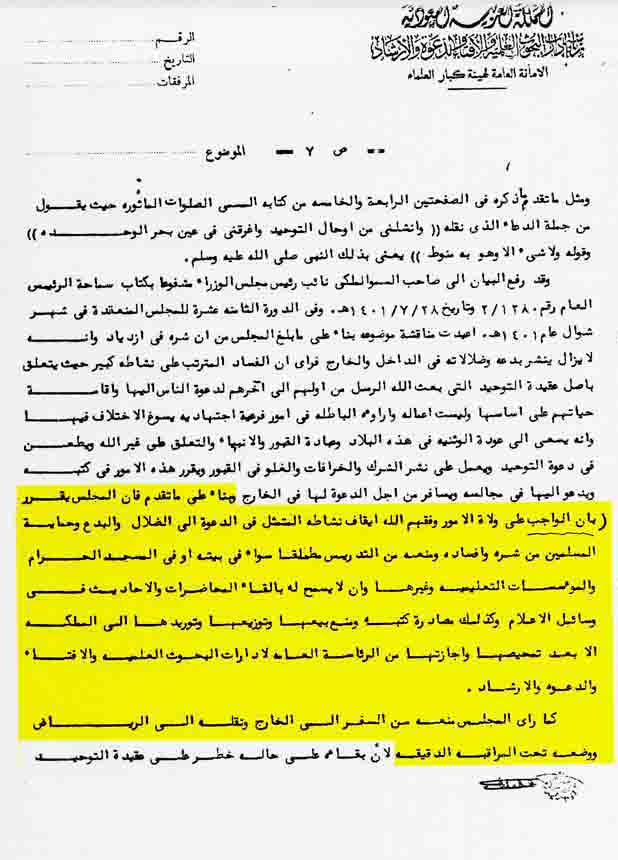 المملكة العربية السعودية
رئاسة ادارات البحوث العلمية والافتاء والدعوة والارشاد
الامانة العامة لهيئة كبار العلماء
الرقم
التاريخ
المرفقات
ص ٧ الموضوع
ومثل ماتقدم ماذكره فى الصفحتين الرابعة والخامسه من كتابه المسمى الصلوات المأثوره حيث يقول
من جملة الدعاء الذى نقله (( وانشلنى من اوحال التوحيد واغرقنى فى عين بحر الوحده ))
وقوله ولاشىء الا وهو به منوط )) يعنى بذلك النبى صلى الله عليه وسلم .
وقد رفع البيان الى صاحب السمو الملكى نائب رئيس مجلس الوزراء مشفوعا بكتاب سماحة الرئيس
العام رقم ٢/١٢٨٠ وتاريخ ١٤٠١/٧/٢٨هـ. وفى الدورة الثامنه عشرة للمجلس المنعقدة فى شهر
شوال عام ١٤٠١هـ. اعيدت مناقشة موضوعه بناء على مابلغ المجلس من ان شره فى ازدياد وانه
لا يزال ينشر بدعه وضلالاته فى الداخل والخارج فراى ان الفساد المترتب على نشاطه كبير حيث يتعلق
باصل عقيدة التوحيد التى بعث الله الرسل من اولهم الى آخرهم لدعوة الناس اليها واقامة
حياتهم على اساسها وليست اعماله واراوه الباطله فى امور فرعية اجتهاديه يسوغ الاختلاف فيها
وانه يسعى الى عودة الوثنيه فى هذه البلاد وعبادة القبور والانبياء والتعلق على غير الله ويطعن
فى دعوة التوحيد ويعمل على نشر الشرك والخرافات والغلو فى القبور ويقرر هذه الامور فى كتبه
ويدعو اليها فى مجالسه ويسافر من اجل الدعوة لها فى الخارج وبناء على ماتقدم فان المجلس يقرر
( بان الواجب على ولاة الامور وفقهم الله ايقاف نشاطه المتمثل فى الدعوة الى الضلال والبدع وحماية
المسلمين من شره وافساده ومنعه من التدريس مطلقا سواء فى بيته او فى المسجد الحرام
والمؤسسات التعليميه وغيرها وان لا يسمح له بالقاء المحاضرات والاحاديث فى
وسائل الاعلام وكذلك مصادرة كتبه ومنع بيعها وتوزيعها وتوريدها الى المملكه
الا بعد تمحيصها واجازتها من الرئاسة العامه لادارات البحوث العلميه والافتاء
والدعوه والارشاد .
كما راى المجلس منعه من السفر الى الخارج ونقله الى الرياض
ووضعه تحت المراقبه الدقيقه لأن بقاءه على حاله خطر على عقيدة التوحيد